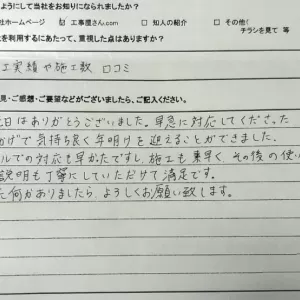 ようにして当社をお知りになられましたか?
社ホームページ ☑ 工事屋さん.com □ 知人の紹介 □ その他(
チラシを見て 等
を利用するにあたって、重視した点はありますか?
工実績や施工数 口コミ
見・ご感想・ご要望などがございましたら、ご記入ください。
日はありがとうございました。早急に対応してくださった
かげで気持ち良く年明けを迎えることができました。
ールでの対応も早かたですし、施工も素早く、その後の使い
説明も丁寧にしていただけて満足です。
た何かありましたら、よろしくお願い致します。